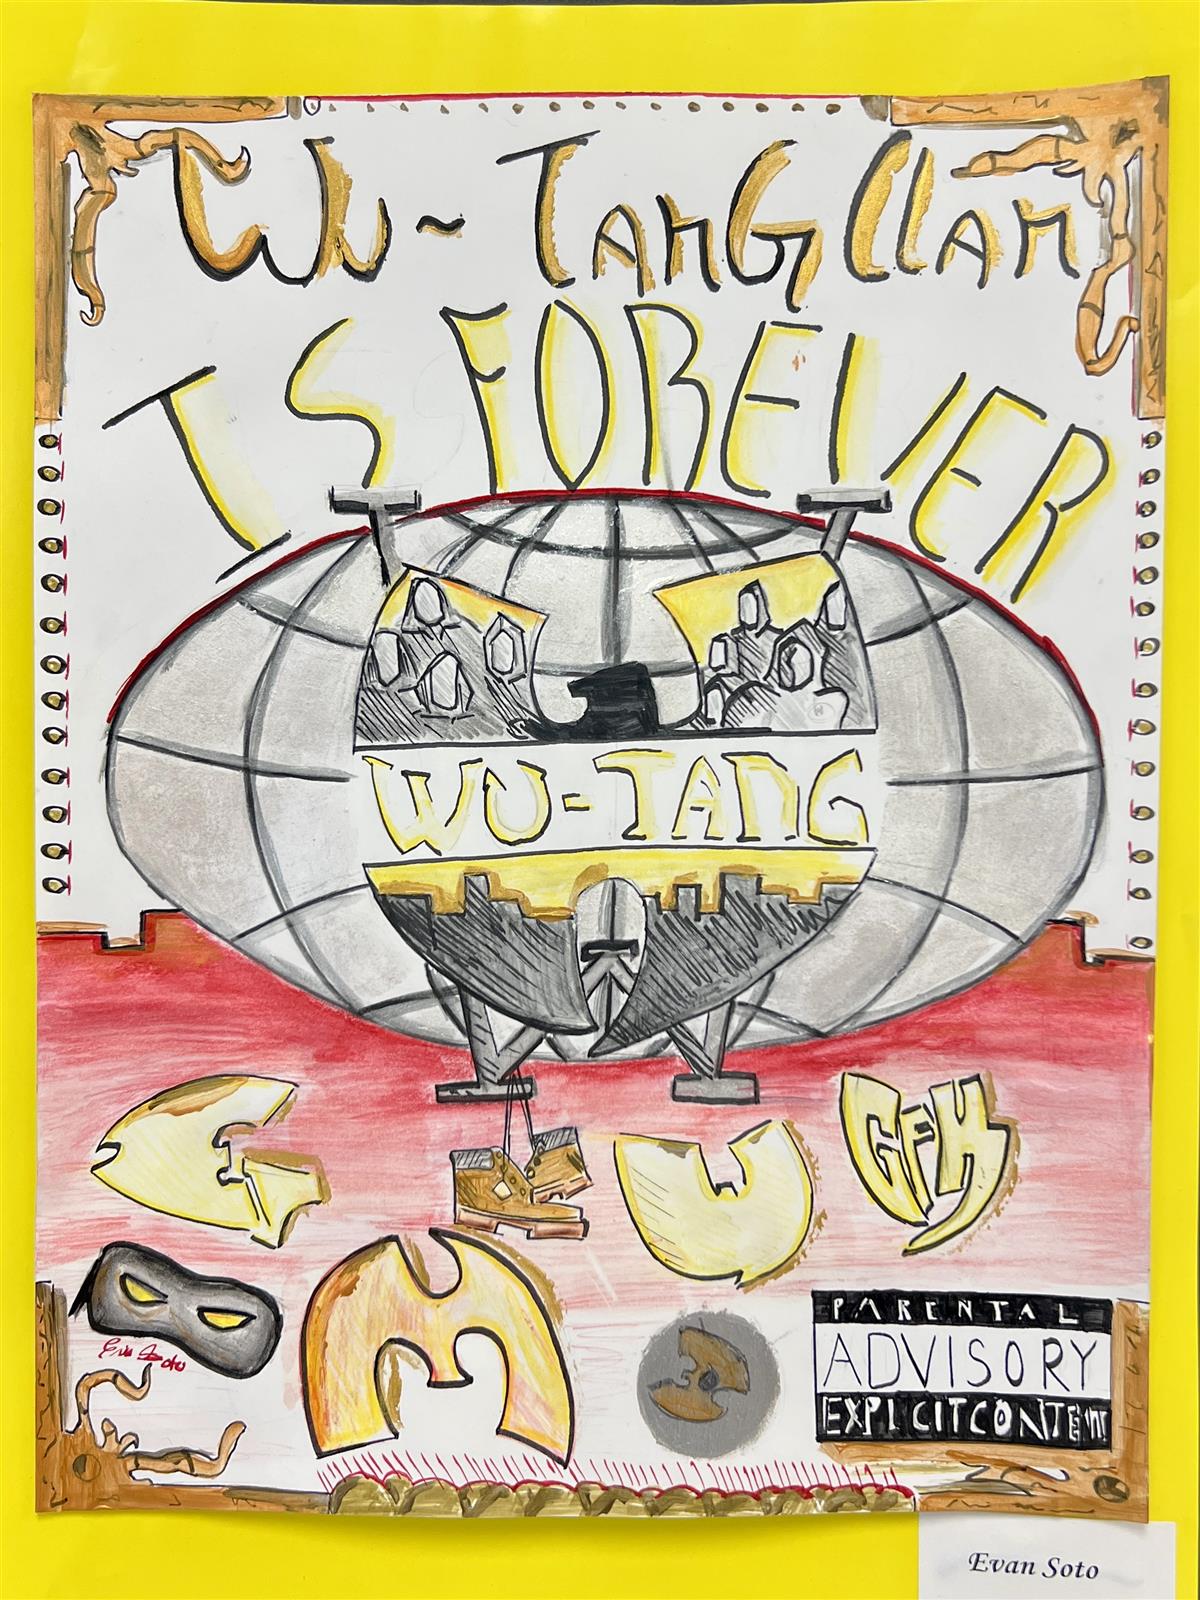 Wu~TANG CLAN
IS FOREVER
WU-TANG
GFK
Evan Soto
PARENTAL
ADVISORY
EXPLICIT CONTENT
Evan Soto